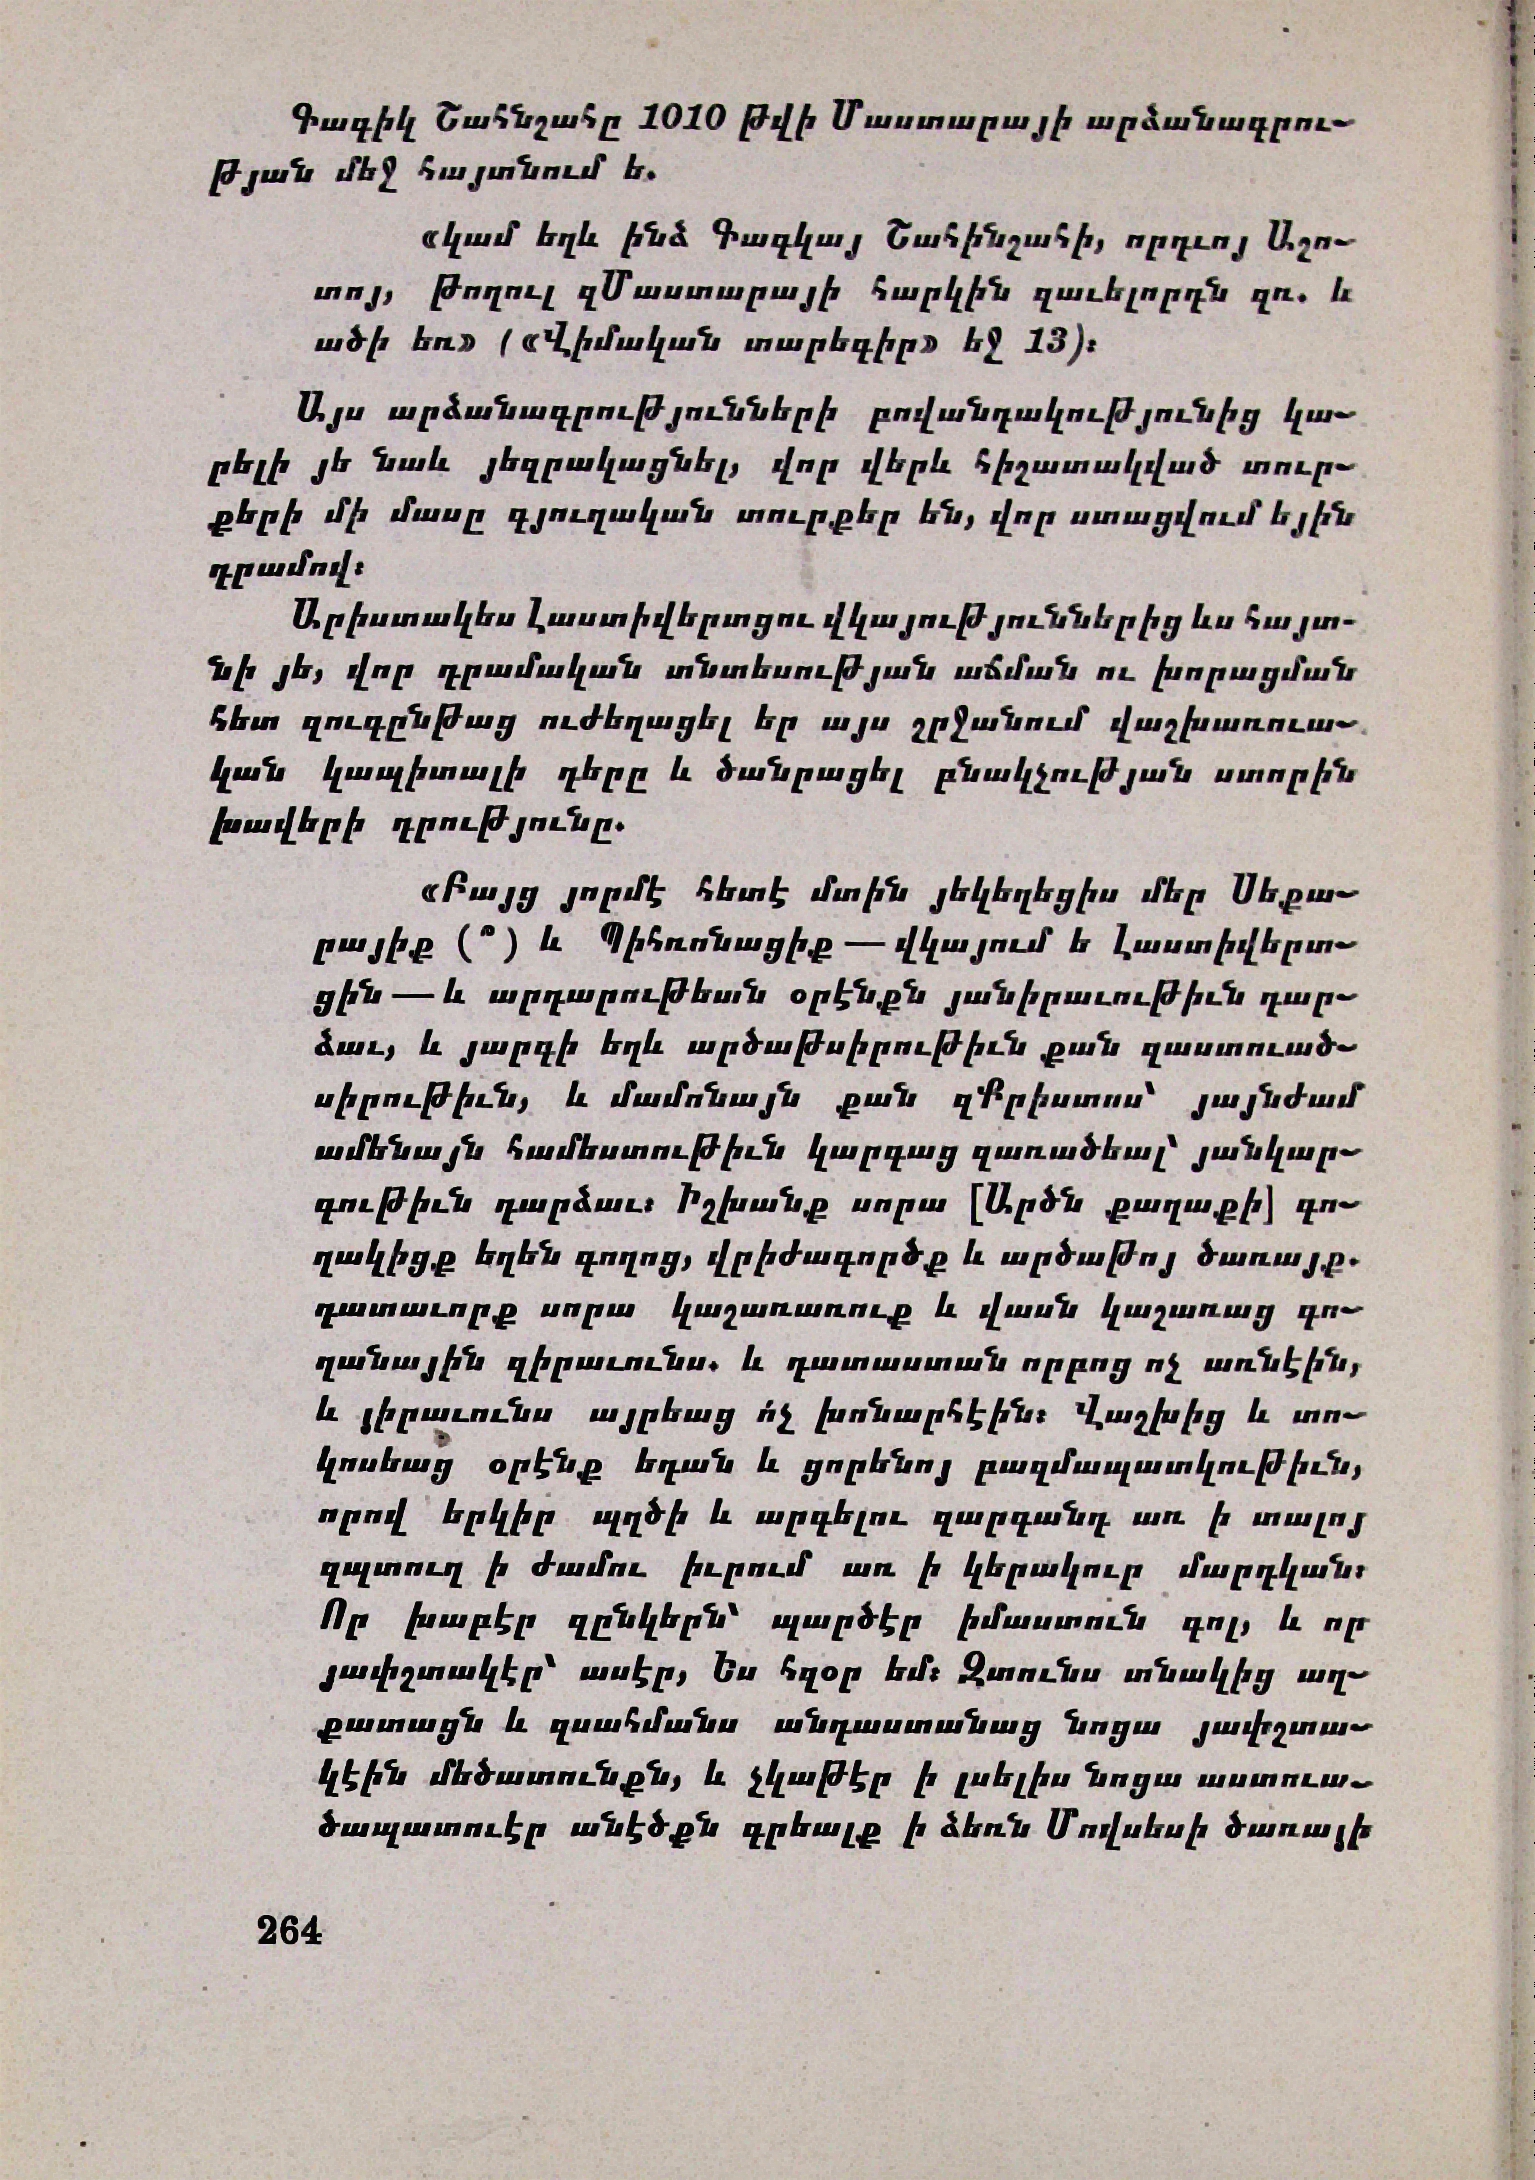 Գագիկ Շահնշահը 1010 թվի Մաստարայի արձանագրու֊
թյան մեջ հայտնում ե.
«կամ եղև ինձ Գագկայ Շահինշահի, որդւոյ Աշո֊
տոյ, թողուլ զՄաստարայի հարկին զաւելորդն զո. և
ածի եռ» («Վիմական տարեգիր» եջ 13)։
Այս արձանագրությունների բովանդակությունից կա֊
րելի յե նաև յեզրակացնել, վոր վերև հիշատակված տուր֊
քերի մի մասը գյուղական տուրքեր են, վոր ստացվում եյին
դրամով։
Արիստակես Լաստիվերտցու վկայություններից ևս հայտ֊
նի յե, վոր դրամական տնտեսության աճման ու խորացման
հետ զուգընթաց ուժեղացել եր այս շրջանում վաշխառուա֊
կան կապիտալի դերը և ծանրացել բնակչության ստորին
խավերի դրությունը.
«Բայց յորմէ հետէ մտին յեկեղեցիս մեր Սեքա֊
րայիք (՞) և Պիհռոնացիք — վկայում ե Լաստիվերտ֊
ցին — և արդարութեան օրէնքն յանիրաւութիւն դար֊
ձաւ, և յարգի եղև արծաթսիրութիւն քան զաստուած֊
սիրութիւն, և մամոնայն քան զՔրիստոս՝ յայնժամ
ամենայն համեստութիւն կարգաց զառածեալ՝ յանկար֊
գութիւն դարձաւ։ Իշխանք սորա [Արծն քաղաքի] գո֊
ղակիցք եղեն գողոց, վրիժագործք և արծաթոյ ծառայք.
դատաւորք սորա կաշառառուք և վասն կաշառաց գո֊
ղանային զիրաւունս. և դատաստան որբոց ոչ առնէին,
և յիրաւունս այրեաց ո՛չ խոնարհէին։ Վաշխից և տո֊
կոսեաց օրէնք եդան և ցորենոյ բազմապատկութիւն,
որով երկիր պղծի և արգելու զարգանդ առ ի տալոյ
զպտուղ ի ժամու իւրում առ ի կերակուր մարդկան։
Որ խաբէր զընկերն՝ պարծէր իմաստուն գոլ, և որ
յափշտակէր՝ ասէր, Ես հզօր եմ։ Զտունս տնակից աղ֊
քատացն և զսահմանս անդաստանաց նոցա յափշտա֊
կէին մեծատունքն, և չկաթէր ի լսելիս նոցա աստուա֊
ծապատուէր անէծքն գրեալք ի ձեռն Մովսեսի ծառայի
264